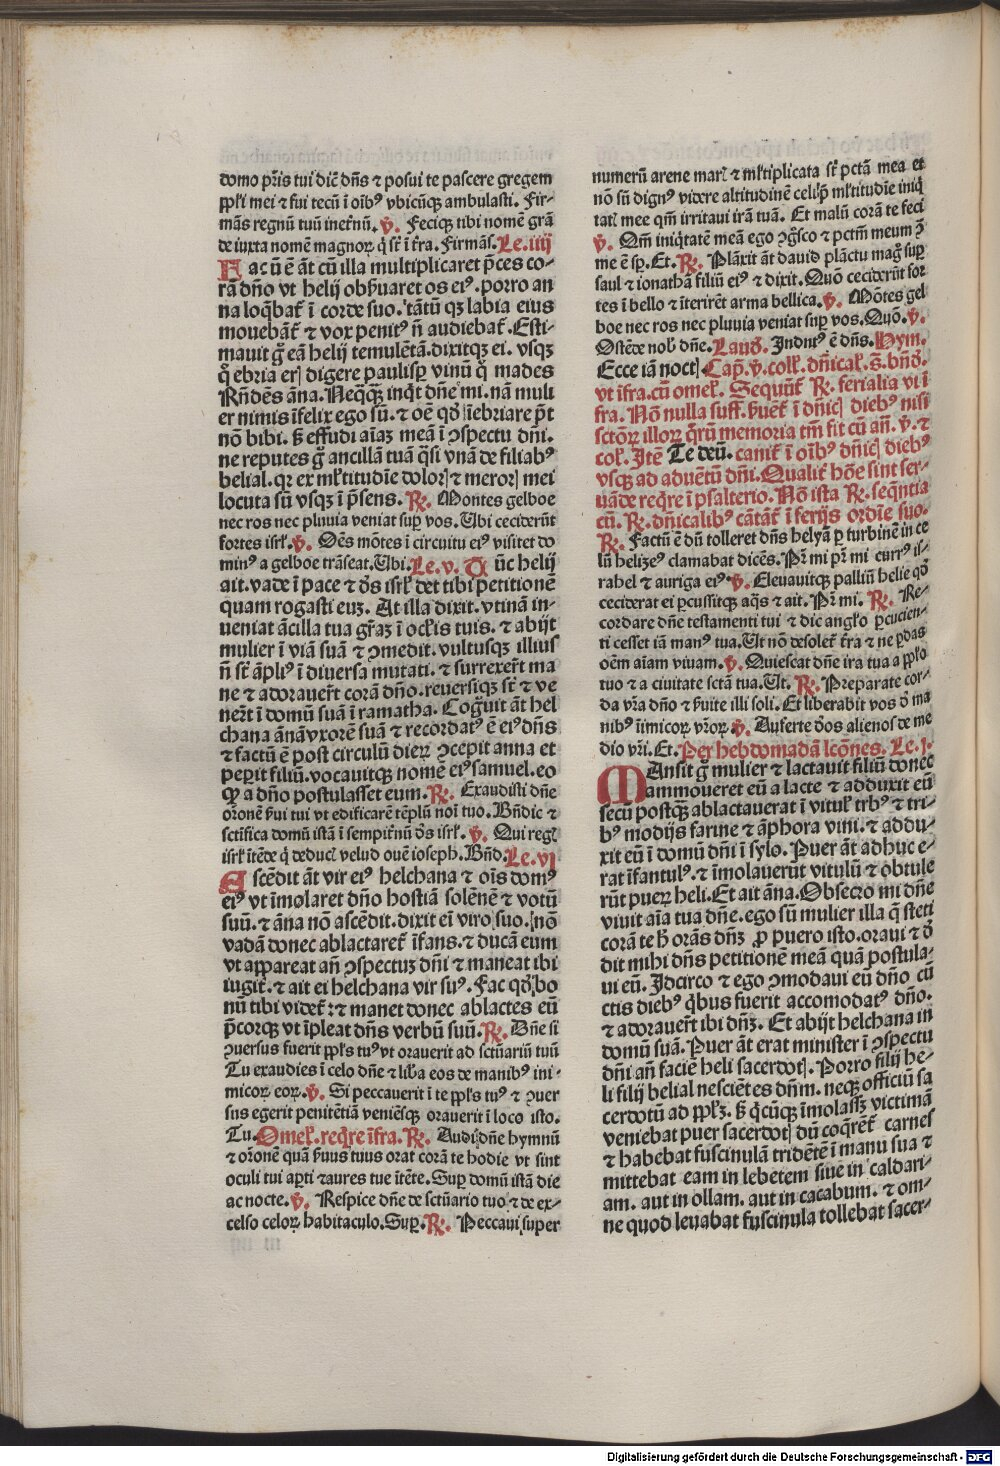 domo p̄ris tui dic̄ dn̄s ⁊ posui te pascere gregem
ppl̄i mei ⁊ fui tecū ī oībꝰ vbicūqꝫ ambulasti. Fir-
māſ regnū tuū inet̄nū. ℣. Feciqꝫ tibi nomē grā
de iuxta nomē magnoꝝ q̄ st̄ ī t̄ra. Firmāſ. Le. iiij
Fac ū ē āt cū illa multiplicaret p̄ces co-
rā dn̄o vt helij obſuaret os eiꝰ. porro an
na loq̄bat̄ ī corde suo. tātū qꝫ labia eius
mouebāt̄ ⁊ vox penitꝰ n̄ audiebat̄. Esti-
mauit g̊ eā helij temulētā. dixitqꝫ ei. vsqꝫ
q̄ ebria erꝭ digere paulisꝑ vinū q̊ mades
Rn̄dēs āna. Neq̄qꝫ inq̄t dn̄e mi. nā muli
er nimis īfelix ego sū. ⁊ oē qd̄ īebriare p̄t
nō bibi. ſꝫ effudi aīaꝫ meā ī ꝯspectu dn̄i.
ne reputes g̊ ancillā tuā q̄si vnā de filiabꝰ
belial. qꝛ ex ml̄titudīe dolorꝭ ⁊ merorꝭ mei
locuta sū vsqꝫ ī p̄sens. ℟. Montes gelboe
nec ros nec pluuia veniat suꝑ vos. Ubi ceciderūt
fortes isrl̄. ℣. Oēs mōtes ī circuitu eiꝰ visitet do
minꝰ a gelboe trāseat. Ubi. Le. v. Tūc helij
ait. vade ī pace ⁊ ds̄ isrl̄ det tibi petitionē
quam rogasti euꝫ. At illa dixit. vtinā in-
ueniat ācilla tua gr̄aꝫ ī ocl̄is tuis. ⁊ abijt
mulier ī viā suā ⁊ ꝯmedit. vultusqꝫ illius
n̄ st̄ āpliꝰ ī diuersa mutati. ⁊ surrexer̄t ma
ne ⁊ adorauer̄t corā dn̄o. reuersiqꝫ st̄ ⁊ ve
ner̄t ī domū suā ī ramatha. Cog̊uit āt hel
chana ānā vxorē suā ⁊ recordatꝰ ē eiꝰ dn̄s
⁊ factū ē post circulū dieꝝ ꝯcepit anna et
peperit filiū. vocauitqꝫ nomē eiꝰ samuel. eo
qꝙ a dn̄o postulasset eum. ℟. Exaudisti dn̄e
or̄onē s̄ui tui vt edificarē tēplū noī tuo. Bn̄dic ⁊
sc̄tifica domū istā ī sempit̄nū ds̄ isrl̄. ℣. Qui regꝭ
isrl̄ ītēde q̄ deducꝭ velud ouē ioseph. Bn̄d. Le. vj
Ascēdit āt vir eiꝰ helchana ⁊ oīs domꝰ
eiꝰ vt īmolaret dn̄o hostiā solēnē ⁊ votū
suū. ⁊ āna nō ascēdit. dixit ei viro suo. nō
vadā donec ablactaret̄ īfans. ⁊ ducā eum
vt appareat añ ꝯspectuꝫ dn̄i ⁊ maneat ibi
iugit̄. ⁊ ait ei helchana vir suꝰ. Fac qd̄ bo
nū tibi videt̄: ⁊ manet donec ablactes eū
p̄corqꝫ vt īpleat dn̄s verbū suū. ℟. Bn̄e si
ꝯuersus fuerit ppl̄s tuꝰ vt orauerit ad sc̄tuariū tuū
Tu exaudies ī celo dn̄e ⁊ lib̄a eos de manibꝰ ini-
micoꝝ eoꝝ. ℣. Si peccauerit ī te ppl̄s tuꝰ ⁊ ꝯuer
sus egerit penitētiā veniēsqꝫ orauerit ī loco isto.
Tu. Omel̄. req̄re īfra. ℟. Audi dn̄e hymnū
⁊ or̄onē quā s̄uus tuus orat corā te hodie vt sint
oculi tui aꝑti ⁊ aures tue ītēte. Suꝑ domū istā die
ac nocte. ℣. Respice dn̄e de sc̄tuario tuo ⁊ de ex-
celso celoꝝ habitaculo. Suꝑ. ℟. Peccaui super
numerū arene marꝭ ⁊ ml̄tiplicata st̄ pctā mea et
nō sū dignꝰ videre altitudinē celi p̄ ml̄titudīe iniq̄
tatꝭ mee qm̄ irritaui irā tuā. Et malū corā te feci
℣. Qm̄ iniq̄tatē meā ego ꝯg̊sco ⁊ pctm̄ meum ꝯ̄
me ē sꝑ. Et. ℟. Plāxit āt dauid plāctu mag̊ suꝑ
saul ⁊ ionathā filiū eiꝰ ⁊ dixit. Quō ceciderūt for
tes ī bello ⁊ īterirēt arma bellica. ℣. Mōtes gel
boe nec ros nec pluuia veniat suꝑ vos. Quō. ℣.
Ostēde nob̄ dn̄e. Laud̄. Indutꝰ ē dn̄s. Hym.
Ecce iā noctꝭ. Cap̄. ℣. coll̄. dn̄ical̄. s. bn̄d.
vt īfra. cū omel̄. Sequūt̄ ℟. ferialia vi ī
fra. Nō nulla suff. s̄uēt̄ ī dn̄icꝭ diebꝰ nisi
sctōꝝ illoꝝ q̄rū memoria tm̄ fit cū añ. ℣. ⁊
col̄. Itē Te deū. canit̄ ī oībꝰ dn̄icꝭ diebꝰ
vsqꝫ ad aduētū dn̄i. Qualit̄ hōe sint ser-
uāde req̄re ī psalterio. Nō ista ℟. seq̄ntia
cū. ℟. dn̄icalibꝰ cātāt̄ ī ferijs ordīe suo.
℟. Factū ē dū tolleret dn̄s helyā ꝑ turbinē in ce
lū helizeꝰ clamabat dicēs. Pr̄ mi pr̄ mi currꝰ is-
rahel ⁊ auriga eiꝰ. ℣. Eleuauitqꝫ palliū helie qd̄
ceciderat ei ꝑcussitqꝫ aq̄s ⁊ ait. Pr̄ mi. ℟. Re-
cordare dn̄e testamenti tui ⁊ dic angl̄o ꝑcucien-
ti cesset iā manꝰ tua. Ut nō desolet̄ t̄ra ⁊ ne ꝑdas
oēm aīam viuam. ℣. Quiescat dn̄e ira tua a ppl̄o
tuo ⁊ a ciuitate sctā tua. Ut. ℟. Preparate cor-
da vr̄a dn̄o ⁊ s̄uite illi soli. Et liberabit vos d̄ ma
nibꝰ īimicoꝝ vr̄oꝝ. ℣. Auferte d̄os alienos de me
dio vr̄i. Et. Per hebdomadā lc̄ōnes. Le. j.
Mansit g̊ mulier ⁊ lactauit filiū donec
ammoueret eū a lacte ⁊ adduxit eū
secū postqꝫ ablactauerat ī vitul̄ trbꝰ ⁊ tri-
bꝰ modijs farine ⁊ āphora vini. ⁊ addu-
xit eū ī domū dn̄i ī sylo. Puer āt adhuc e-
rat īfantulꝰ. ⁊ īmolauerūt vitulū ⁊ obtule
rūt pueꝝ heli. Et ait āna. Obsecro mi dn̄e
viuit aīa tua dn̄e. ego sū mulier illa q̄ steti
corā te h̄ orās dn̄ꝫ ꝓ puero isto. oraui ⁊ d̄
dit mihi dn̄s petitionē meā quā postula-
ui eū. Idcirco ⁊ ego ꝯmodaui eū dn̄o cū
ctis diebꝰ q̄bus fuerit accomodatꝰ dn̄o.
⁊ adorauer̄t ibi dn̄ꝫ. Et abijt helchana in
domū suā. Puer āt erat minister ī ꝯspectu
dn̄i añ faciē heli sacerdotꝭ. Porro filij he-
li filij belial nesciētes dn̄m. neqꝫ officiū sa
cerdotū ad ppl̄ꝫ. ſꝫ q̄cūqꝫ īmolasꝫ victimā
veniebat puer sacerdotꝭ dū coq̄rēt̄ carnes
⁊ habebat fuscinulā tridētē ī manu sua ⁊
mittebat eam in lebetem siue in caldari-
am. aut in ollam. aut in cacabum. ⁊ om-
ne quod leuabat fuscinula tollebat sacer-
Digitalisierung gefördert durch die Deutsche Forschungsgemeinschaft - DFG